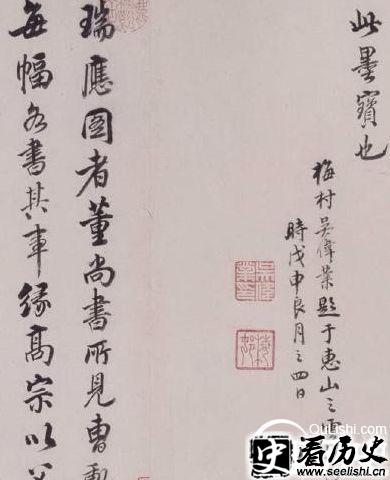 此墨寶也
梅村吳偉業題于惠山之
時戊申良月之四日
瑞應圖者董尚書所見曹勛
每幅各書其事緣高宗以
QuLiShi.com
史看历史
www.seelishi.com